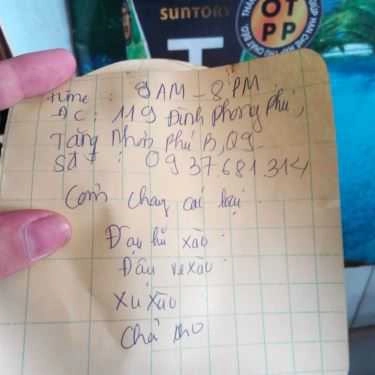 SUNTORY
T
OT
PP
time : 8 AM - 8 PM
ĐC : 119 Đình Phong Phú,
Tăng Nhơn Phú B, Q9
Sđt : 0937681314
Cơm chay các loại
Đậu hủ xào
Đậu ve xào
Xu xào
Chả kho